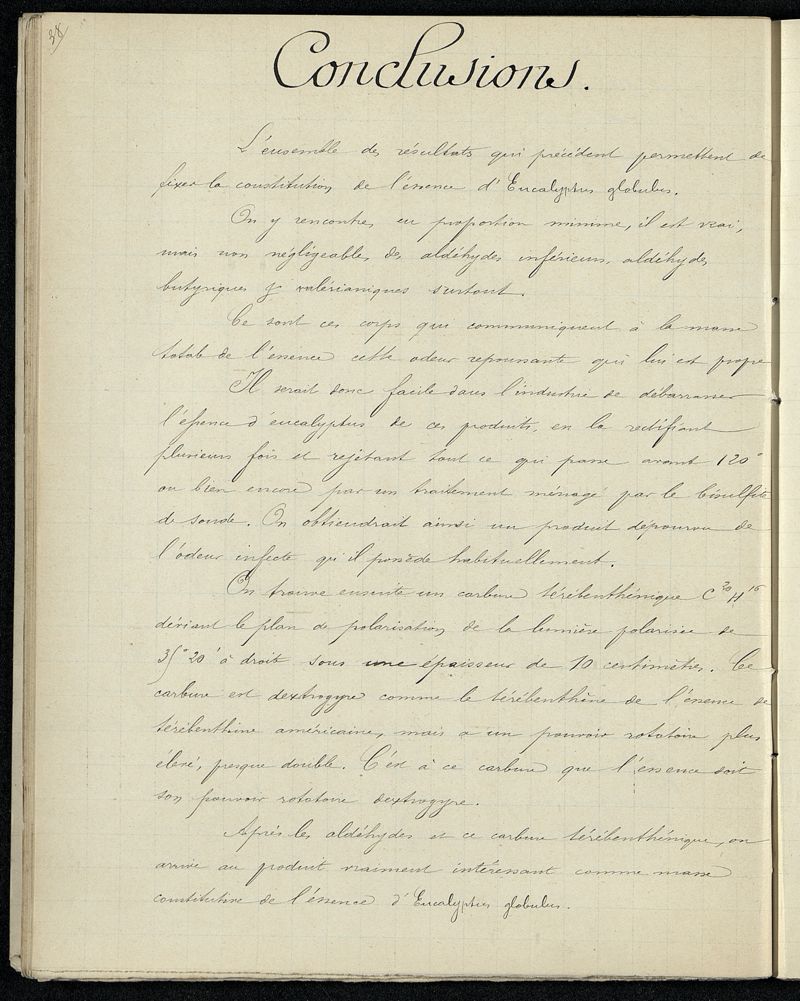 38
Conclusions.
L'ensemble des résultats qui précédent permettent de
fixer la constitution de l'éssence d'Eucalyptus globulus.
On y rencontre, en proportion minime, il est vrai,
mais non négligeable, des aldéhydes inférieurs, aldéhydes
butyriques & valérianiques surtout.
Ce sont ces corps qui communiquent à la masse
totale de l'éssence cette odeur repoussante qui lui est propre
Il serait donc facile dans l'industrie de débarrasser
l'éssence d'eucalyptus de ces produits, en la rectifiant
plusieurs fois et rejetant tout ce qui passe avant 120°
ou bien encore par un traitement ménagé par le bisulfite
de soude. On obtiendrait ainsi un produit dépourvu de
l'odeur infecte qu'il possède habituellement.
On trouve ensuite un carbure térébenthénique C²⁰H¹⁶
déviant le plan de polarisation de la lumière polarisée de
35° 20' à droite sous une épaisseur de 10 centimètres. Ce
carbure est dextrogyre comme le térébenthène de l'éssence de
térébenthine américaine, mais a un pouvoir rotatoire plus
élevé, presque double. C'est à ce carbure que l'essence doit
son pouvoir rotatoire dextrogyre.
Après les aldéhydes et ce carbure térébenthénique, on
arrive au produit vraiment intéressant comme masse
constitutive de l'éssence d'Eucalyptus globulus.